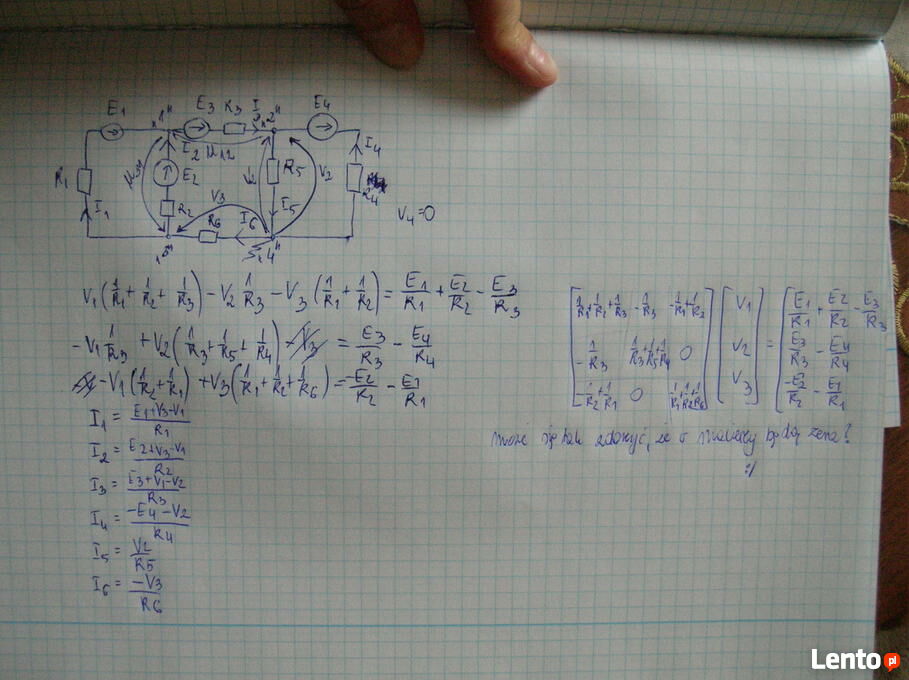 E1 "1" E3 R3 I3 "2" E4
I2 U12 I4
R1 E2 R5 V2 R4
V3 I5
I1 R2 R6 I6 V4=0
"3" "4"
V1(1/R1+1/R2+1/R3)-V2 1/R3-V3(1/R1+1/R2)=E1/R1+E2/R2-E3/R3
-V1 1/R3+V2(1/R3+1/R5+1/R4)=E3/R3-E4/R4
-V1(1/R2+1/R1)+V3(1/R1+1/R2+1/R6)=-E2/R2-E1/R1
I1=E1+V3-V1/R1
I2=E2+V3-V1/R2
I3=E3+V1-V2/R3
I4=-E4-V2/R4
I5=V2/R5
I6=-V3/R6
1/R1+1/R2+1/R3 -1/R3 -1/R1+1/R2 V1 E1/R1+E2/R2-E3/R3
-1/R3 1/R3+1/R5+1/R4 0 V2 = E3/R3-E4/R4
-1/R2+1/R1 0 1/R1+1/R2+1/R6 V3 -E2/R2-E1/R1
może się tak zdarzyć, że w macierzy będą zera?
:/
Lento.pl